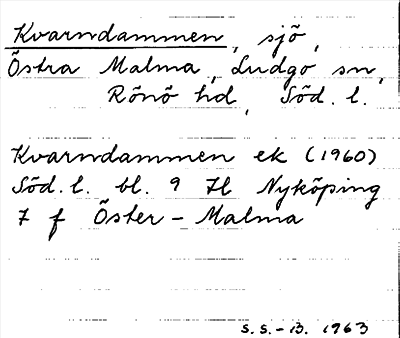 Kvarndammen, sjö,
Östra Malma, Ludgo sn,
Rönö hd, Söd. l.
Kvarndammen ek (1960)
Söd. l. bl. 9 H Nyköping
7 f Öster-Malma
S.S.-B. 1963